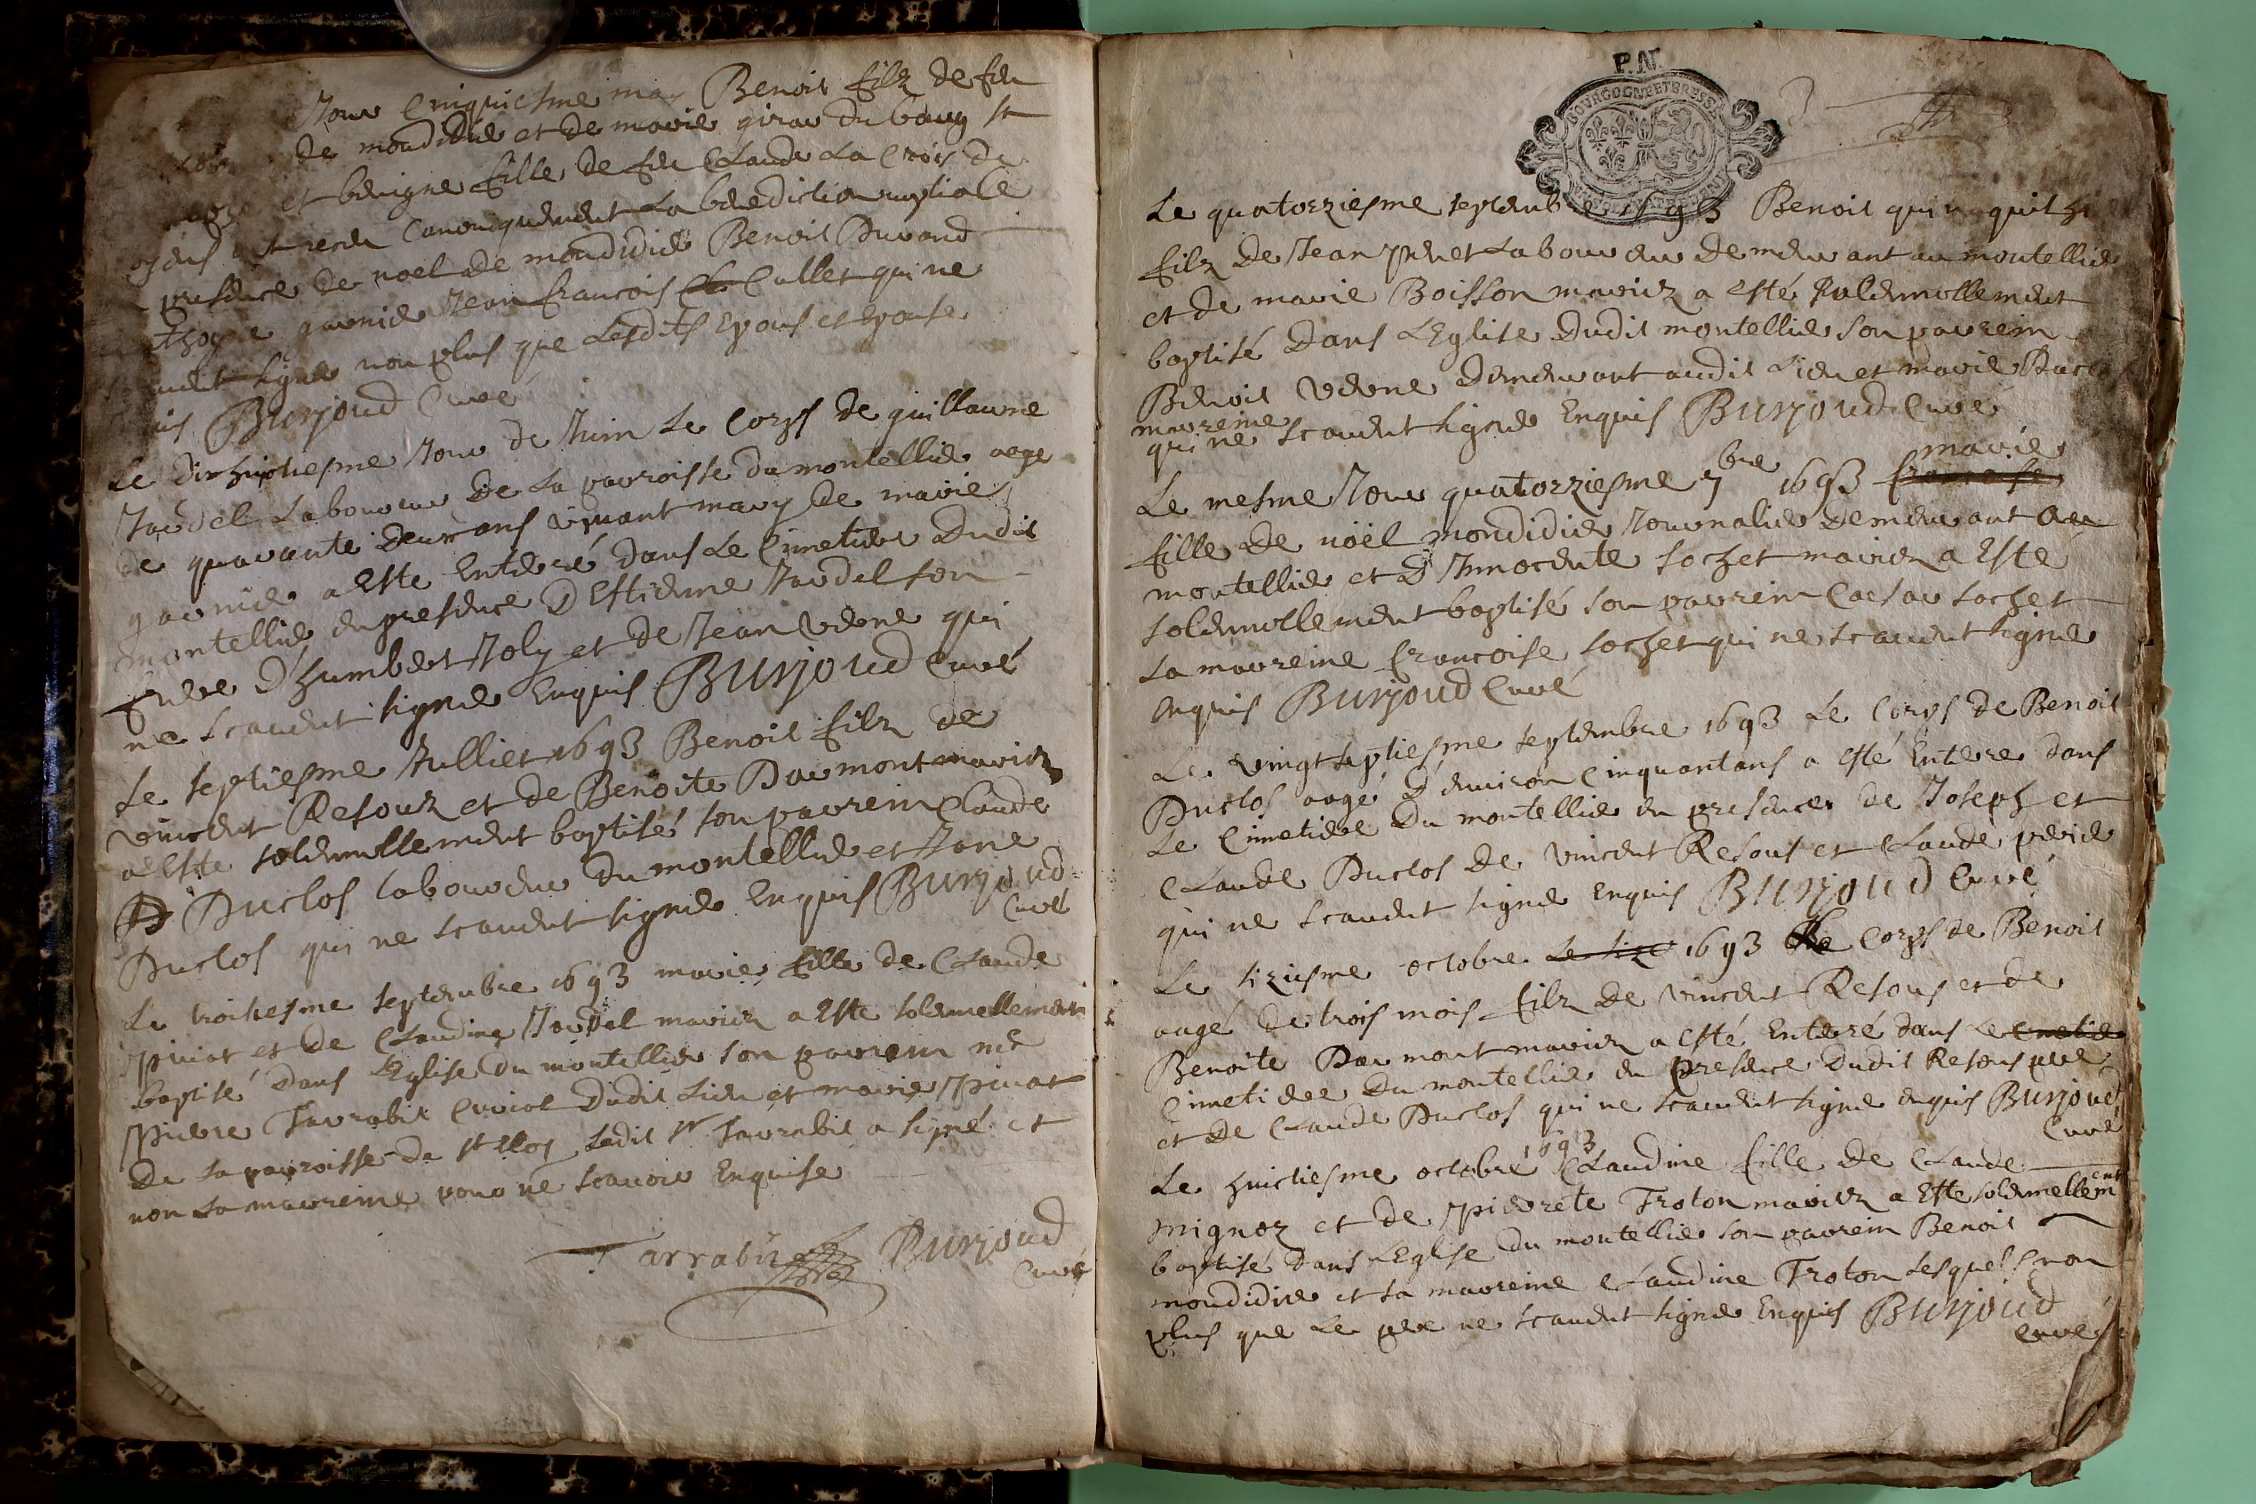 Jour Cinquiesme may Benoit filz de feu
de mondidier et de marie girar du bourg St
et benigne fille de feu Claude La Crois de
receu Canoniquement La benediction nuptiale
presence de noel de mondidier Benoit Durand
garnier Jean francois Cullet qui ne
signer non plus que Lesdits Epous et Epouse
Burjoud Curé
Le dixhuictiesme Jour de Juin Le Corps de guillaume
Jardel Laboureur de La parroisse du montellier aagé
de quarante deux ans vivant mary de marie
garnier a Esté Enterré dans Le Cimetiere Dudit
montellier en presence D'Estienne Jardel son
frere D'humbert Joly et de Jean Verne qui
ne scavent signer Enquis Burjoud Curé
Le septiesme Julliet 1693 Benoit filz de
vincent Resouz et de Benoite Darmont mariez
a Esté solemnellement baptisé son parrein Claude
D Duclos laboureur du montellier et Jane
Duclos qui ne scavent signer Enquis Burjoud
Curé
Le troisiesme septembre 1693 marie fille de Claude
Pivat et de Claudine Jardel mariez a Esté solemnellement
baptisé dans L'Eglise du montellier son parrein me
Pierre Tarrabit Dudit Lieu et marie Pivat
De La parroisse de St Eloy Ledit Sr Tarrabit a signé et
non La marreine pour ne scavoir Enquise
Tarrabit Burjoud
Curé
P.N.
BOURGOGNE ET BRESSE
Le quatorziesme septembre 1693 Benoit
filz de Jean Laboureur demeurant au montellier
et de marie Boisson mariez a esté solemnellement
baptisé dans L'Eglise Dudit montellier son parrein
Benoit Verne Demeurant audit Lieu et marie
marreine
qui ne scavent signer Enquis Burjoud Curé
marie
Le mesme Jour quatorziesme 7bre 1693 francoise
fille de noël mondidier Journalier demeurant au
montellier et D'Innocente sochet mariez a Esté
solemnellement baptisé son parrein Caesar sochet
La marreine francoise sochet qui ne scavent signer
Enquis Burjoud Curé
Le vingtseptiesme septembre 1693 Le Corps de Benoit
Duclos aagé D'environ Cinquantans a esté Enterre dans
Le Cimetiere Du montellier en presence de Joseph et
Claude Duclos de vincent Resous et Claude
qui ne scavent signer Enquis Burjoud Curé
Le siziesme octobre Le size 1693 Le Corps de Benoit
aagé de trois mois filz de vincent Resous et de
Benoite Darmont mariez a esté Enterré dans Le Cimetier
Cimetiere Du montellier en presence Dudit Resous pere
et de Claude Duclos qui ne scavent signer Enquis Burjoud
Curé
Le huictiesme octobre 1693 Claudine fille de Claude
mignoz et de Pierrete Troton mariez a Esté solemnellement
baptisé dans L'Eglise du montellier son parrein Benoit
mondidier et sa marreine Claudine Troton Lesquels non
plus que Le pere ne scavent signer Enquis Burjoud
Curé